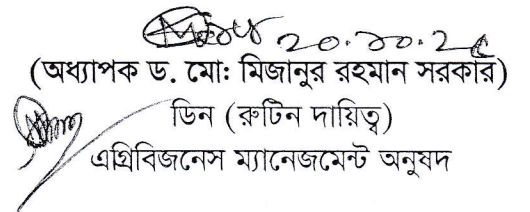 ২০.১০.২৫
(অধ্যাপক ড. মো: মিজানুর রহমান সরকার)
ডিন (রুটিন দায়িত্ব)
এগ্রিবিজনেস ম্যানেজমেন্ট অনুষদ